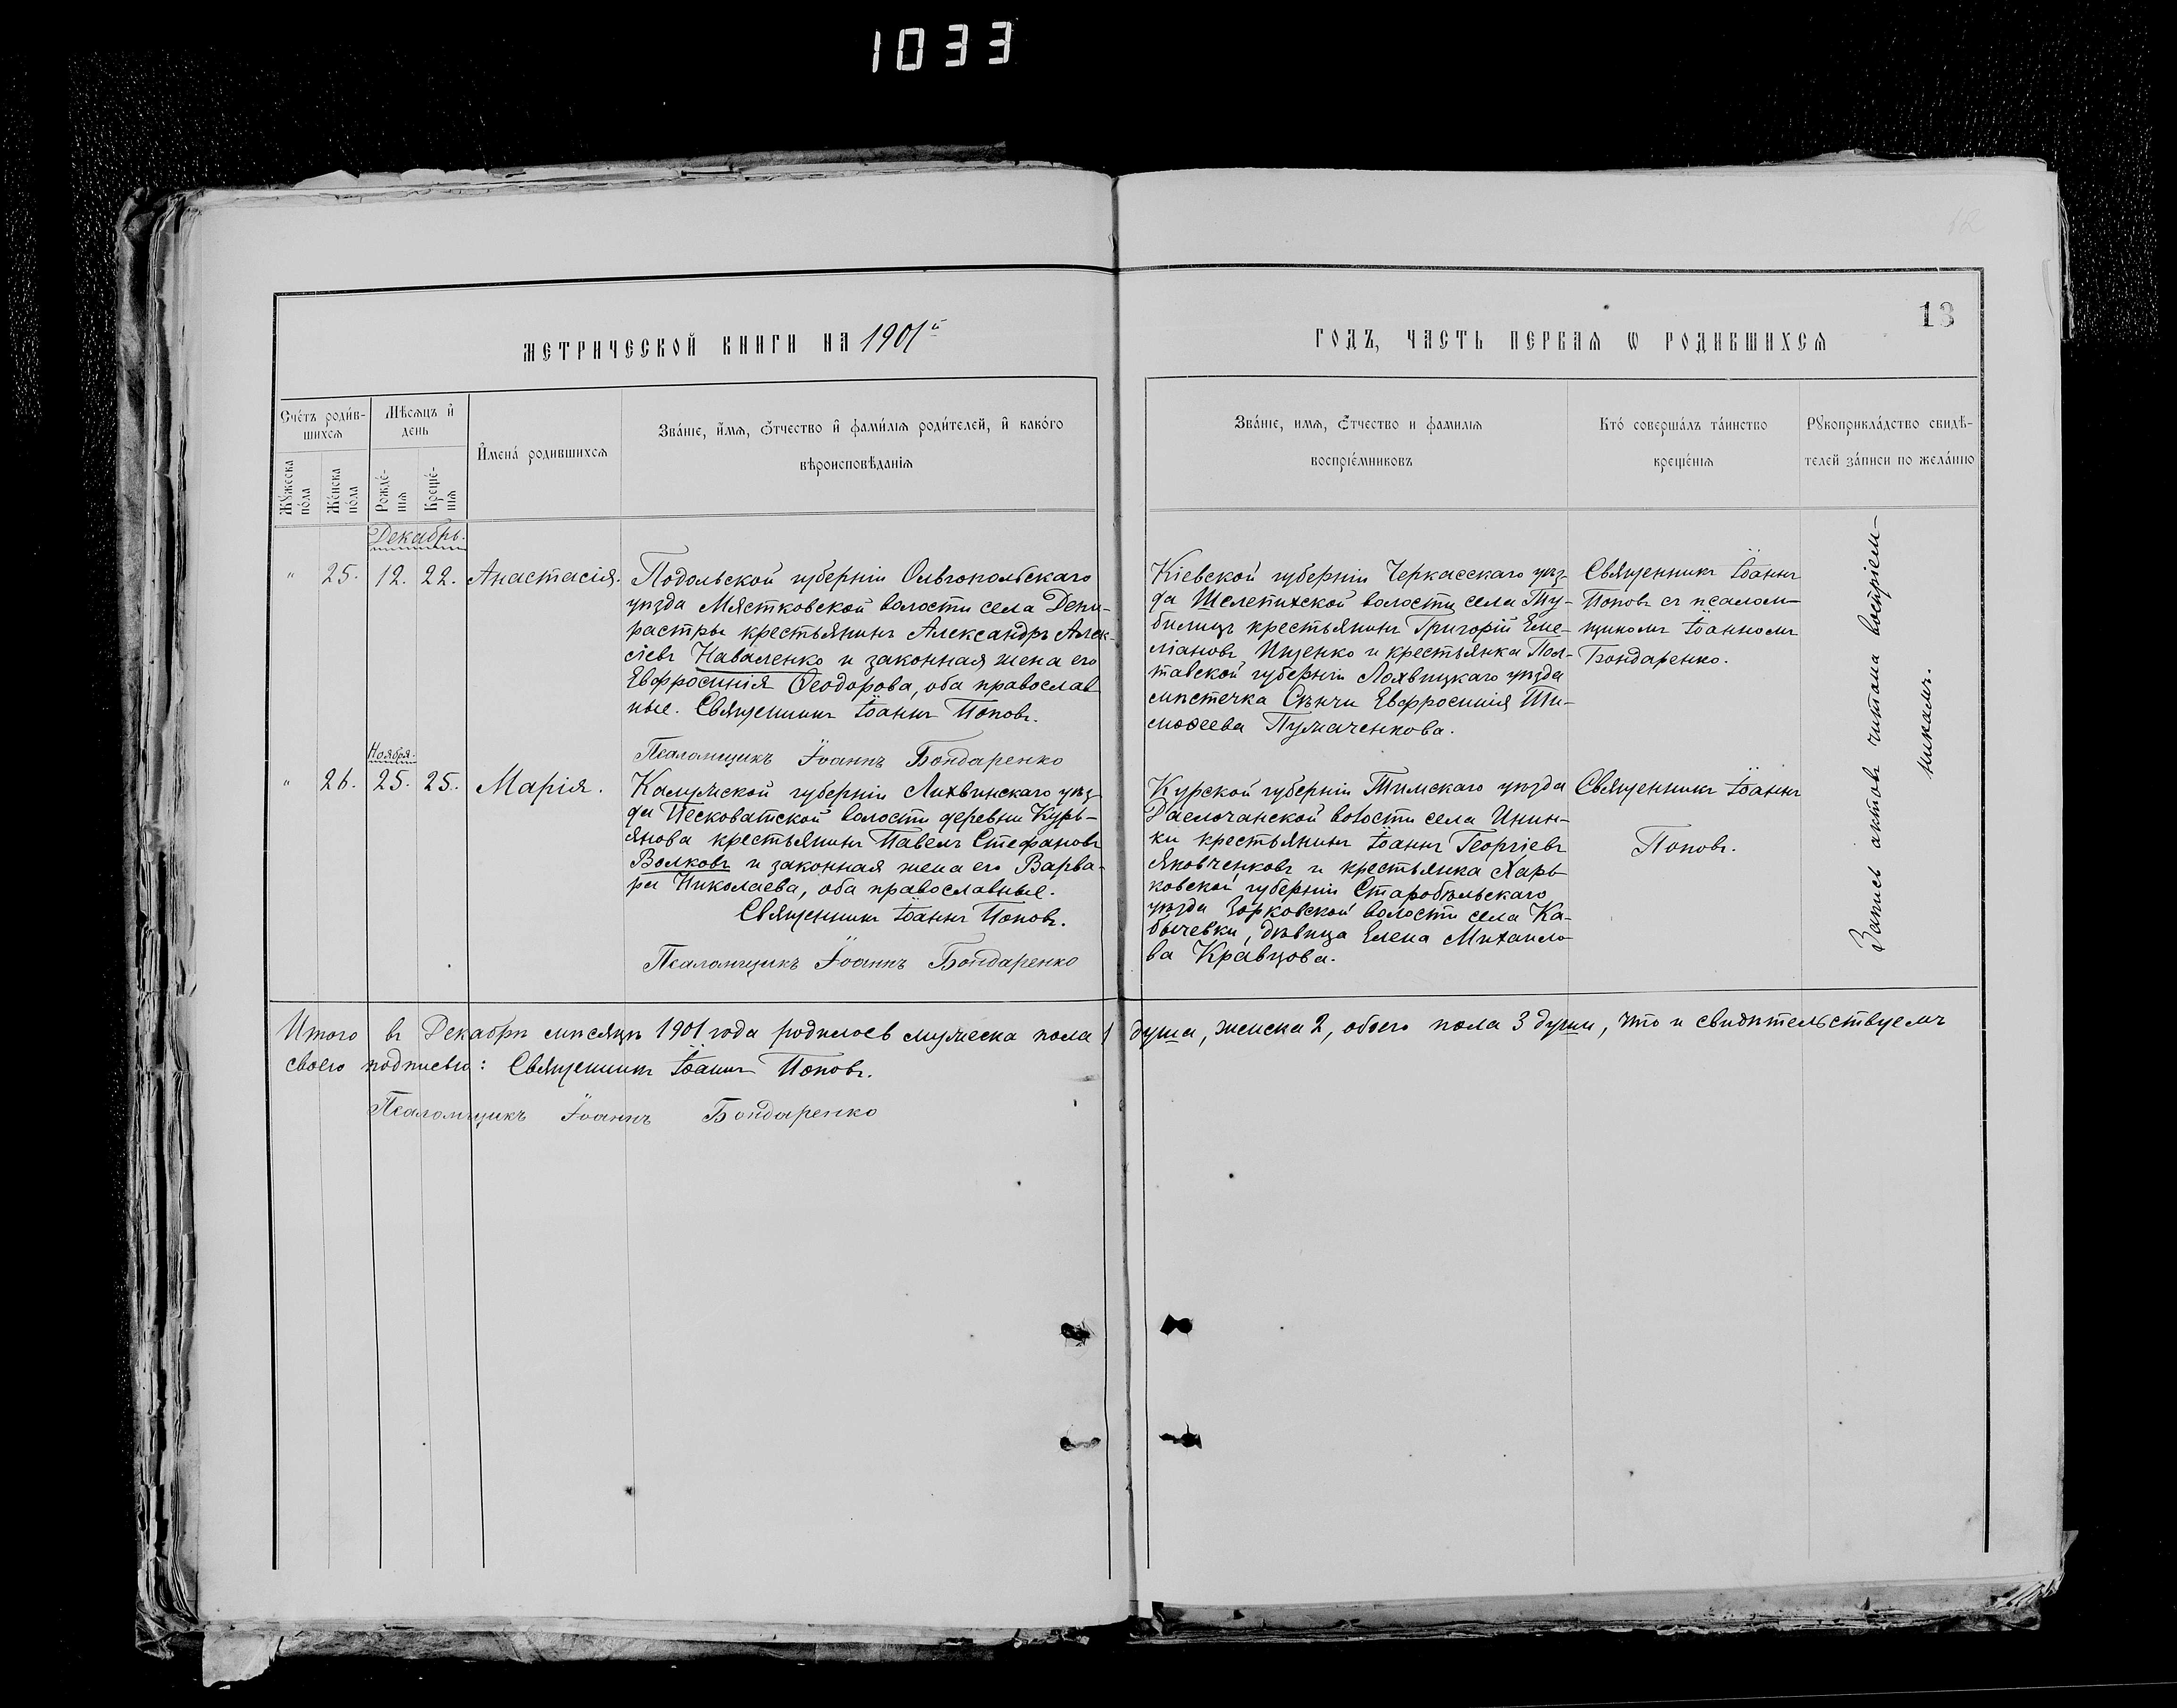 1033
12
13
МЕТРИЧЕСКОЙ КНИГИ НА 1901й
ГОДЪ, ЧАСТЬ ПЕРВАѦ Ѡ РОДИВШИХСѦ
Счётъ роди́в-
шихсѧ
Мѣсѧцъ и҆
день
Мꙋ́жеска
по́ла
Же́нска
по́ла
Рожде́-
нїѧ
Креще́-
нїѧ
И҆мена́ родившихсѧ
Зва́нїе, и҆́мѧ, ѻ҆́тчество и҆ фами́лїѧ роди́телей, и҆ како́гѡ
вѣроисповѣ́данїѧ
Зва́нїе, имѧ, ѻ҆́тчество и фамилїѧ
воспрїе́мниковъ
Кто́ соверша́лъ та́инство
креще́нїѧ
Рꙋкоприкла́дство свидѣ́-
телей за́писи по жела́нїю
Декабрь.
" 25. 12. 22. Анастасія.
Подольской губерніи Ольгопольскаго
уѣзда Мястковской волости села Демі-
растры крестьянинъ Александръ Алек-
сіевъ Наваленко и законная жена его
Евфросинія Ѳеодорова, оба православ
ные. Священникъ Іоаннъ Поповъ.
Псаломщикъ Іоаннъ Бондаренко
Кіевской губерніи Черкасскаго уѣз-
да Шелепихской волости села Ту-
билицъ крестьянинъ Григорій Еме-
ліановъ Ищенко и крестьянка Пол-
тавской губерніи Лохвицкаго уѣзда
мѣстечка Сѣнчи Евфросинія Ти-
моѳеева Пумаченкова.
Священникъ Іоаннъ
Поповъ съ псалом-
щикомъ Іоанномъ
Бондаренко.
Запись актовъ читана воспріем-
никамъ.
Ноября.
" 26. 25. 25. Марія.
Калужской губерніи Лихвинскаго уѣз-
да Песковатской волости деревни Курь-
янова крестьянинъ Павелъ Стефановъ
Волковъ и законная жена его Варва-
ра Николаева, оба православные.
Священникъ Іоаннъ Поповъ.
Псаломщикъ Іоаннъ Бондаренко
Курской губерніи Тимскаго уѣзда
волости села Инин-
ки крестьянинъ Іоаннъ Георгіевъ
Яковченковъ и крестьянка Харь
ковской губерніи Старобѣльскаго
уѣзда Зорковской волости села Ка-
бычевки, дѣвица Елена Михаило-
ва Кравцова.
Священникъ Іоаннъ
Поповъ.
Итого въ Декабрѣ мѣсяцѣ 1901 года родилось мужеска пола 1 душа, женска 2, обоего пола 3 души, что и свидѣтельствуемъ
своею подписью: Священникъ Іоаннъ Поповъ.
Псаломщикъ Іоаннъ Бондаренко